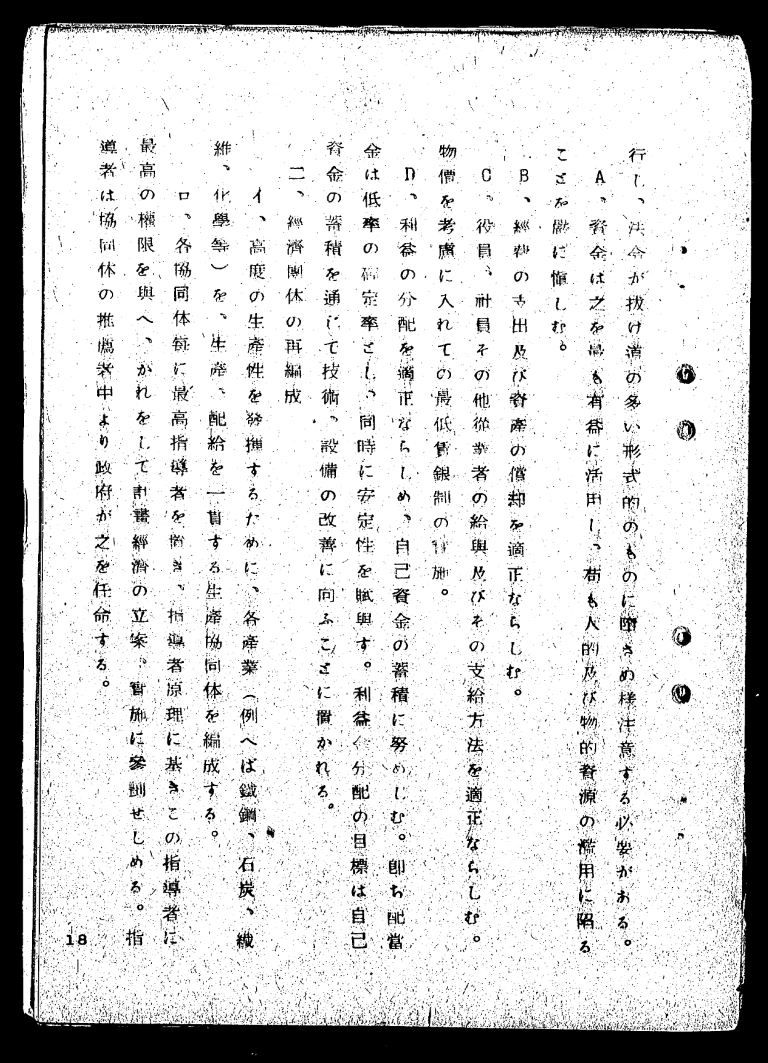 行し、法令が抜け道の多い形式的のものに墮きぬ樣注意する必要がある。
A、資金は之を最も有益に活用し、苟も人的及び物的資源の濫用に陷る
ことを嚴に愼しむ。
B、經費の支出及び資產の償却を適正ならしむ。
C、役員、社員その他從業者の給與及びその支給方法を適正ならしむ。
物價を考慮に入れての最低賃銀制の實施。
D、利益の分配を適正ならしめ、自己資金の蓄積に努めしむ。卽ち配當
金は低率の確定率とし、同時に安定性を賦與す。利益分配の目標は自己
資金の蓄積を通じて技術、設備の改善に向ふことに置かれる。
二、經濟團体の再編成
イ、高度の生產性を發揮するために、各產業（例へば鐵鋼、石炭、纖
維、化學等）を、生產、配給を一貫する生產協同体を編成する。
ロ、各協同体每に最高指導者を置き、指導者原理に基きこの指導者に
最高の權限を與へ、かれをして計畫經濟の立案、實施に參劃せしめる。指
導者は協同休の推薦者中より政府が之を任命する。
18